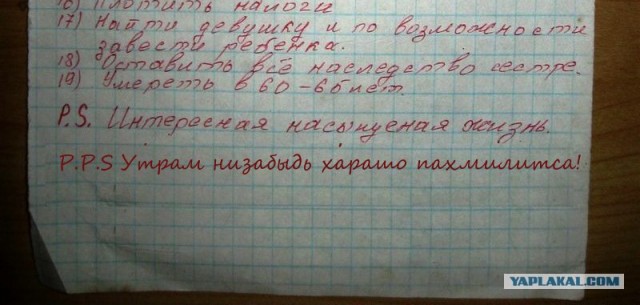 16) Платить налоги
17) Найти девушку и по возможности
завести ребенка.
18) Оставить всё наследство сестре.
19) Умереть в 60-65 лет.
P.S. Интересная насыщеная жизнь.
P.P.S Утрам низабыдь харашо пахмилитса!
YAPLAKAL.COM